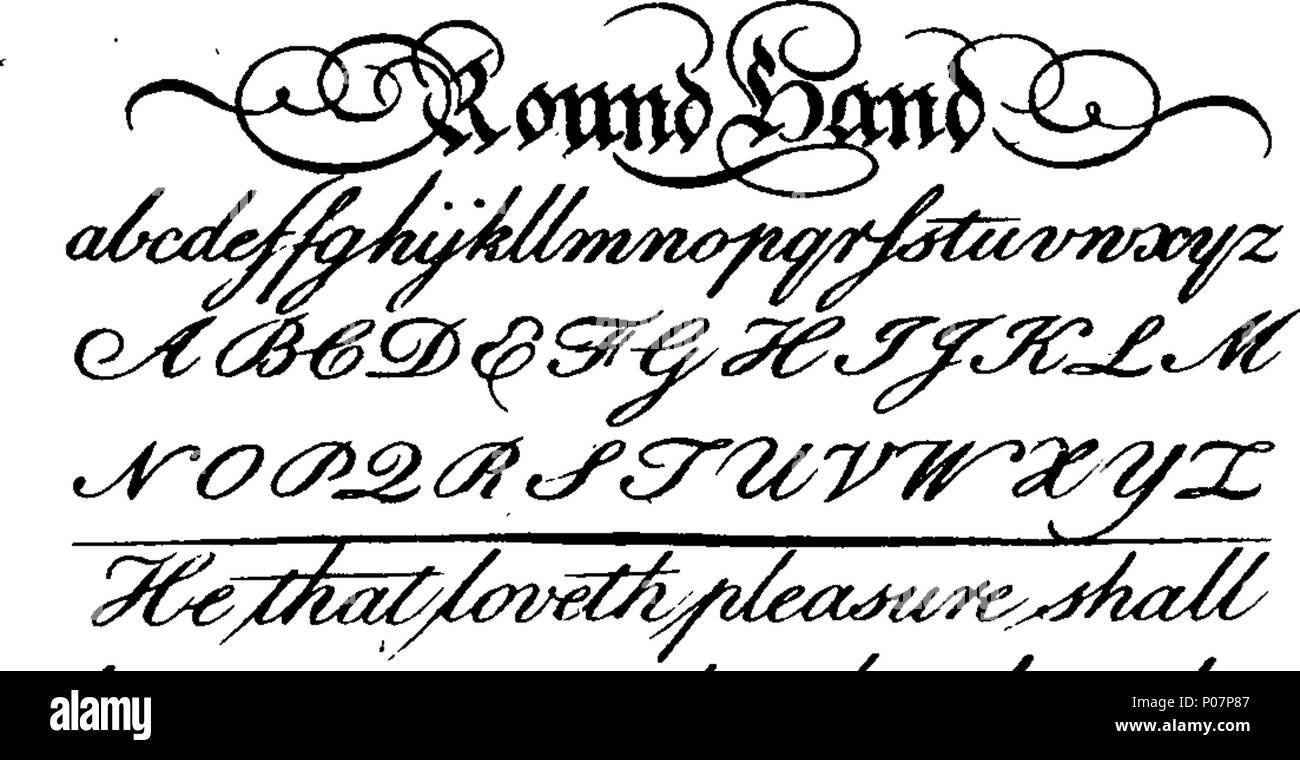 Round Hand
abcdefffghijkllmnopqrſstuvwxyz
A B C D E F G H I J K L M
N O P Q R S T U V W X Y Z
He that loveth pleasure shall
alamy
Image ID: P07P87
www.alamy.com